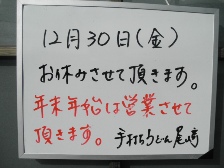 12月30日(金)
お休みさせて頂きます。
年末年始は営業させて
頂きます。 手打ちうどん 尾﨑